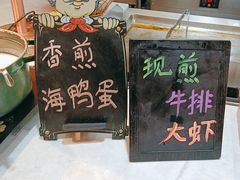 香煎
海鸭蛋
现煎
牛排
大虾